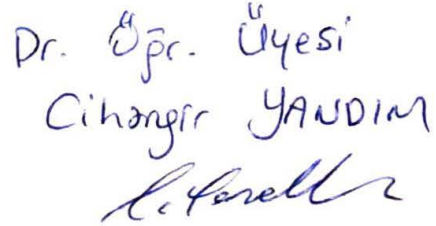 Dr. Öğr. Üyesi
Cihangir YANDIM